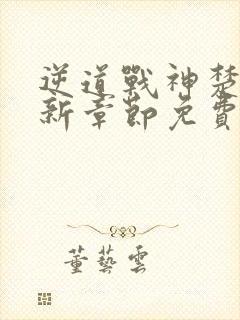 逆道戰神楚
新章節免費
董藝雲